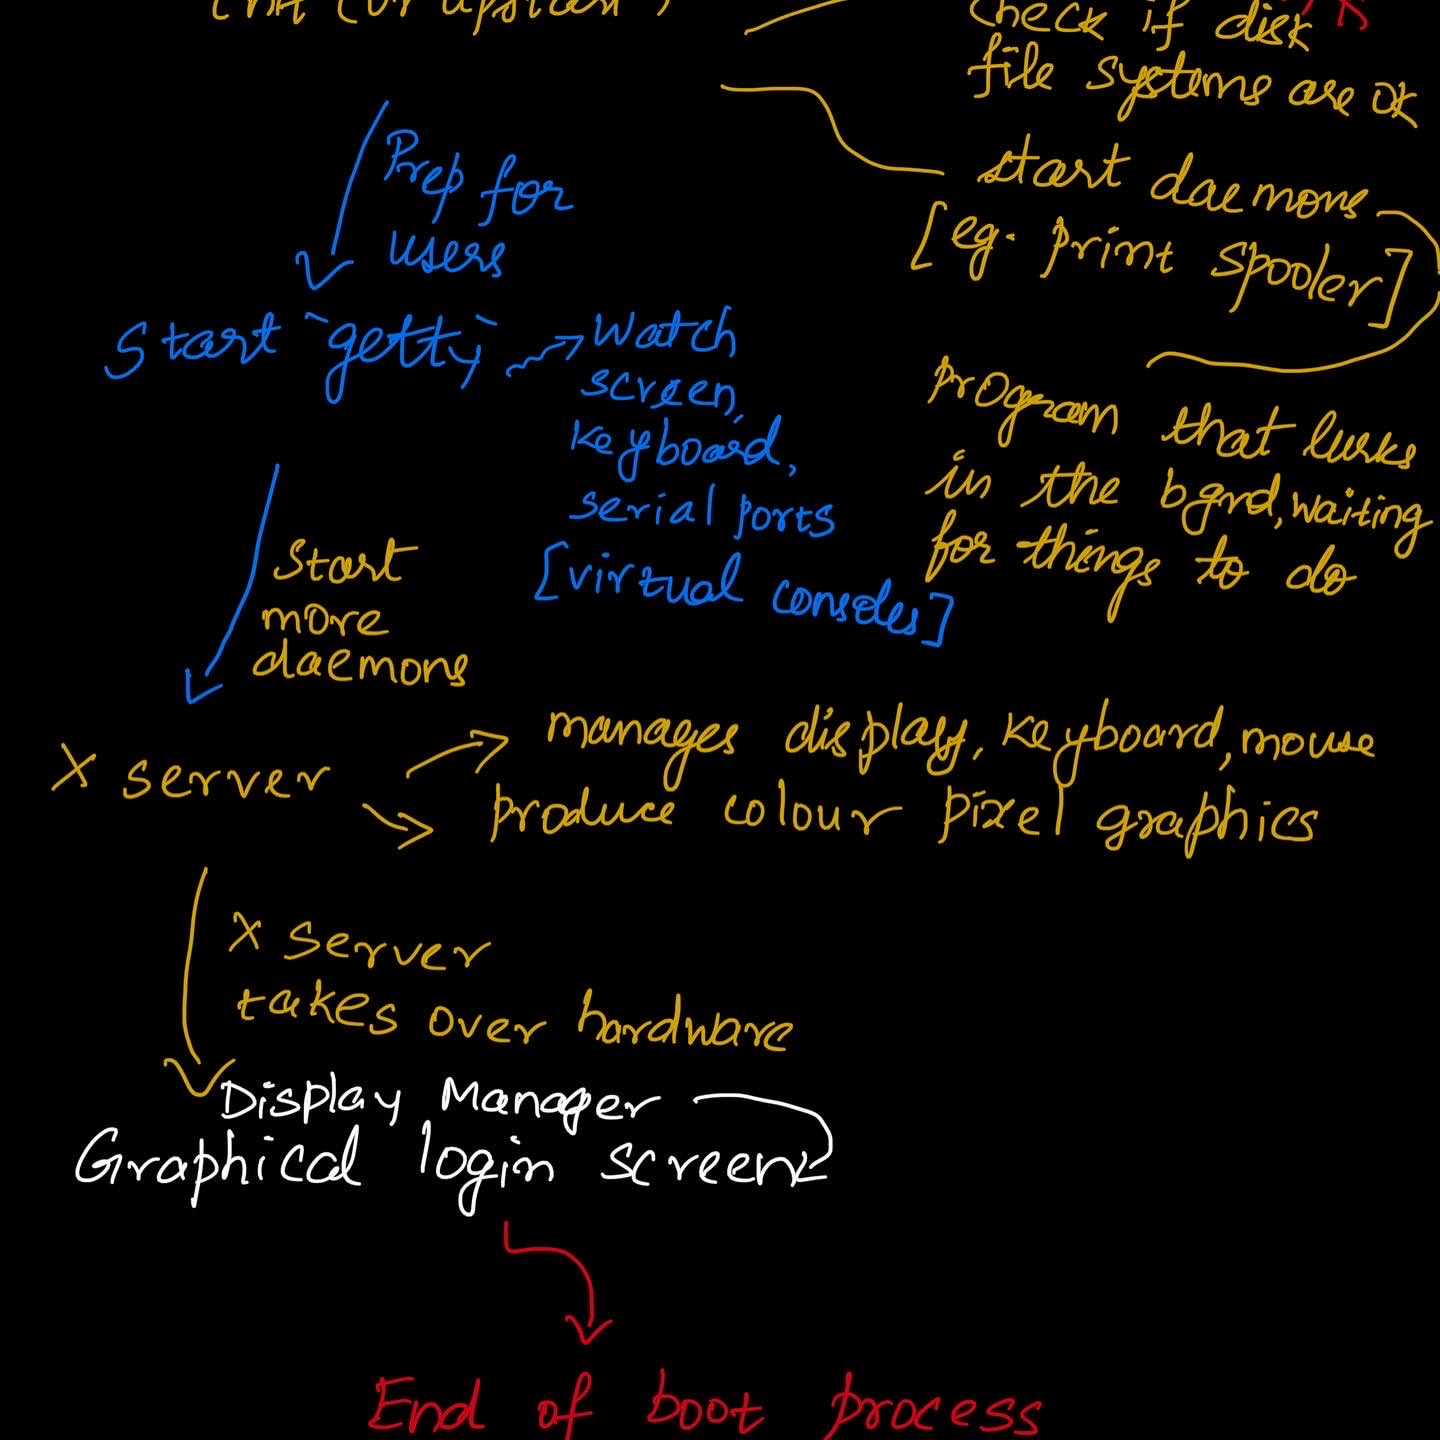 init (or upstart)
check if disk
file systems are ok
start daemons
[eg. print spooler]
program that lurks
in the bgrd, waiting
for things to do
Prep for
users
Start `getty`
Watch
screen,
keyboard,
serial ports
[virtual consoles]
Start
more
daemons
X server
manages display, keyboard, mouse
produce colour pixel graphics
X server
takes over hardware
Display Manager
Graphical login screen
End of boot process